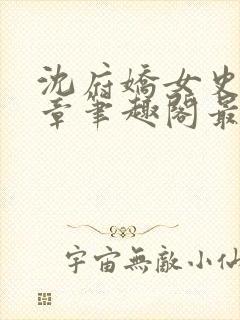 沈府嬌女史
章筆趣閣最
宇宙無敵小仙